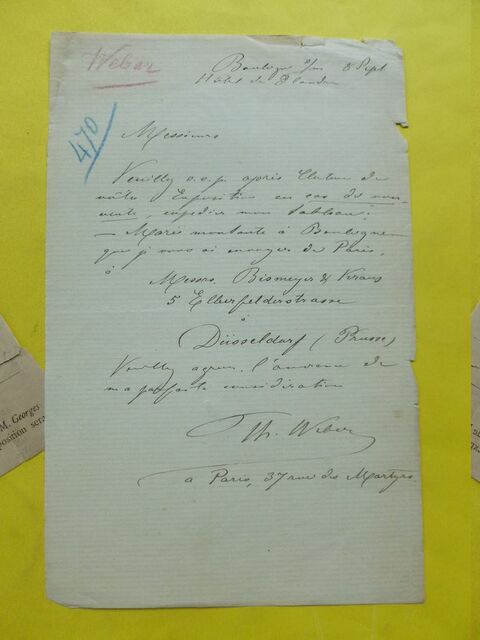 Weber
Boulogne s/m 8 Sept
Hôtel de Flandre
470
Messieurs
Veuillez s.v.p. après Cloture de
vôtre Exposition en cas de non-
vente, expédier mon tableau:
— Marée montante à Boulogne
que je vous ai envoyer de Paris,
à
Messrs. Bismeyer & Kraus
5 Elberfelderstrasse
à
Düsseldorf (Prusse)
Veuillez agréer l'assurance de
ma parfaite considération
Th. Weber
à Paris, 37 rue des Martyrs.
M. Georges
position sera